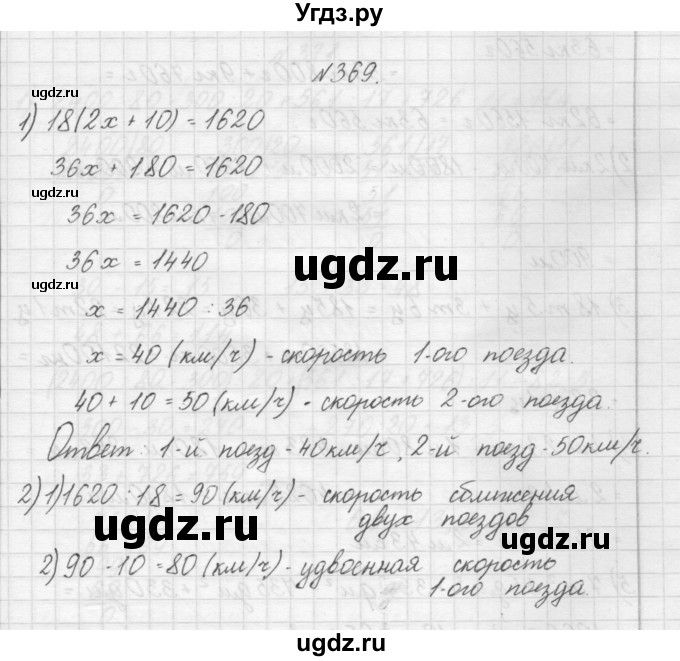 Угдз.ру
№369.
1) 18(2x + 10) = 1620
36x + 180 = 1620
угдз.ру
36x = 1620 - 180
36x = 1440
ugdz.ru
угдз.ру
x = 1440 : 36
x = 40 (км/ч) - скорость 1-ого поезда.
40 + 10 = 50 (км/ч) - скорость 2-ого поезда.
Ответ: 1-й поезд - 40км/ч, 2-й поезд - 50км/ч.
2) 1) 1620 : 18 = 90 (км/ч) - скорость сближения
двух поездов
ugdz.ru
2) 90 - 10 = 80 (км/ч) - удвоенная скорость
1-ого поезда.
ugdz.ru